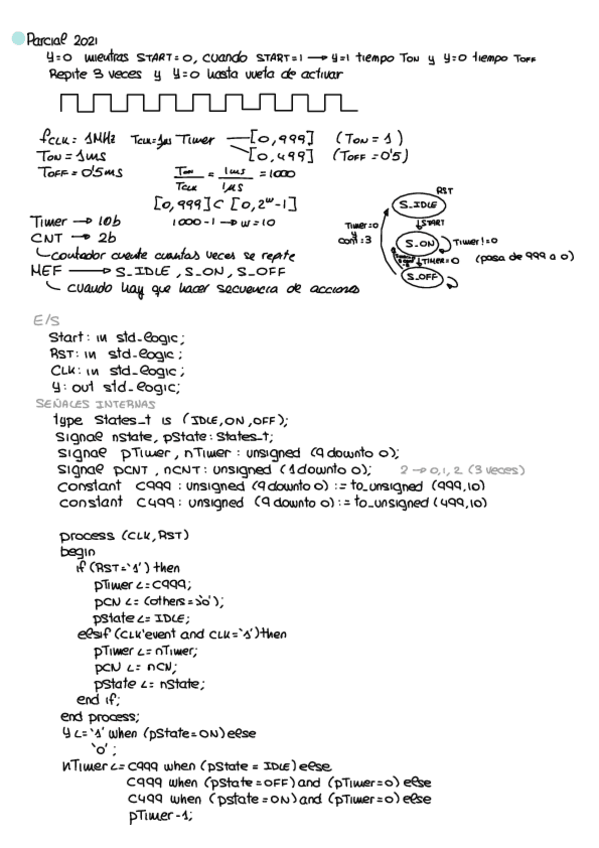 Parcial 2021
y=0 mientras START=0, cuando START=1 → y=1 tiempo TON y y=0 tiempo TOFF
Repite 3 veces y y=0 hasta vuelta de activar
fCLK = 1MHz TCLK=1μs Timer [0,999] (TON = 1)
[0,499] (TOFF = 0'5)
TON = 1ms
TOFF = 0'5ms
TON/TCLK = 1ms/1μs = 1000
[0,999] ⊂ [0,2^w-1]
Timer → 10b 1000-1 → w=10
CNT → 2b
contador cuente cuantas veces se repite
MEF → S_IDLE, S_ON, S_OFF
cuando hay que hacer secuencia de acciones
RST
S_IDLE
↓START
Timer=0
y
cont=3
S_ON Timer!=0
↓TIMER=0 (pasa de 999 a 0)
S_OFF
E/S
Start: in std_logic;
RST: in std_logic;
CLK: in std_logic;
y: out std_logic;
SEÑALES INTERNAS
type States_t is (IDLE,ON,OFF);
Signal nState, pState: States_t;
signal pTimer, nTimer: unsigned (9 downto 0);
signal pCNT, nCNT: unsigned (1 downto 0); 2→0,1,2 (3 veces)
constant C999: unsigned (9 downto 0) := to_unsigned (999,10)
constant C499: unsigned (9 downto 0) := to_unsigned (499,10)
process (CLK,RST)
begin
if (RST='1') then
pTimer <= C999;
pCN <= (others=>'0');
pState <= IDLE;
elsif (CLK'event and CLK='1') then
pTimer <= nTimer;
pCN <= nCN;
pState <= nState;
end if;
end process;
y <= '1' when (pState=ON) else
'0';
nTimer <= C999 when (pState = IDLE) else
C999 when (pState=OFF) and (pTimer=0) else
C499 when (pstate=ON) and (pTimer=0) else
pTimer-1;